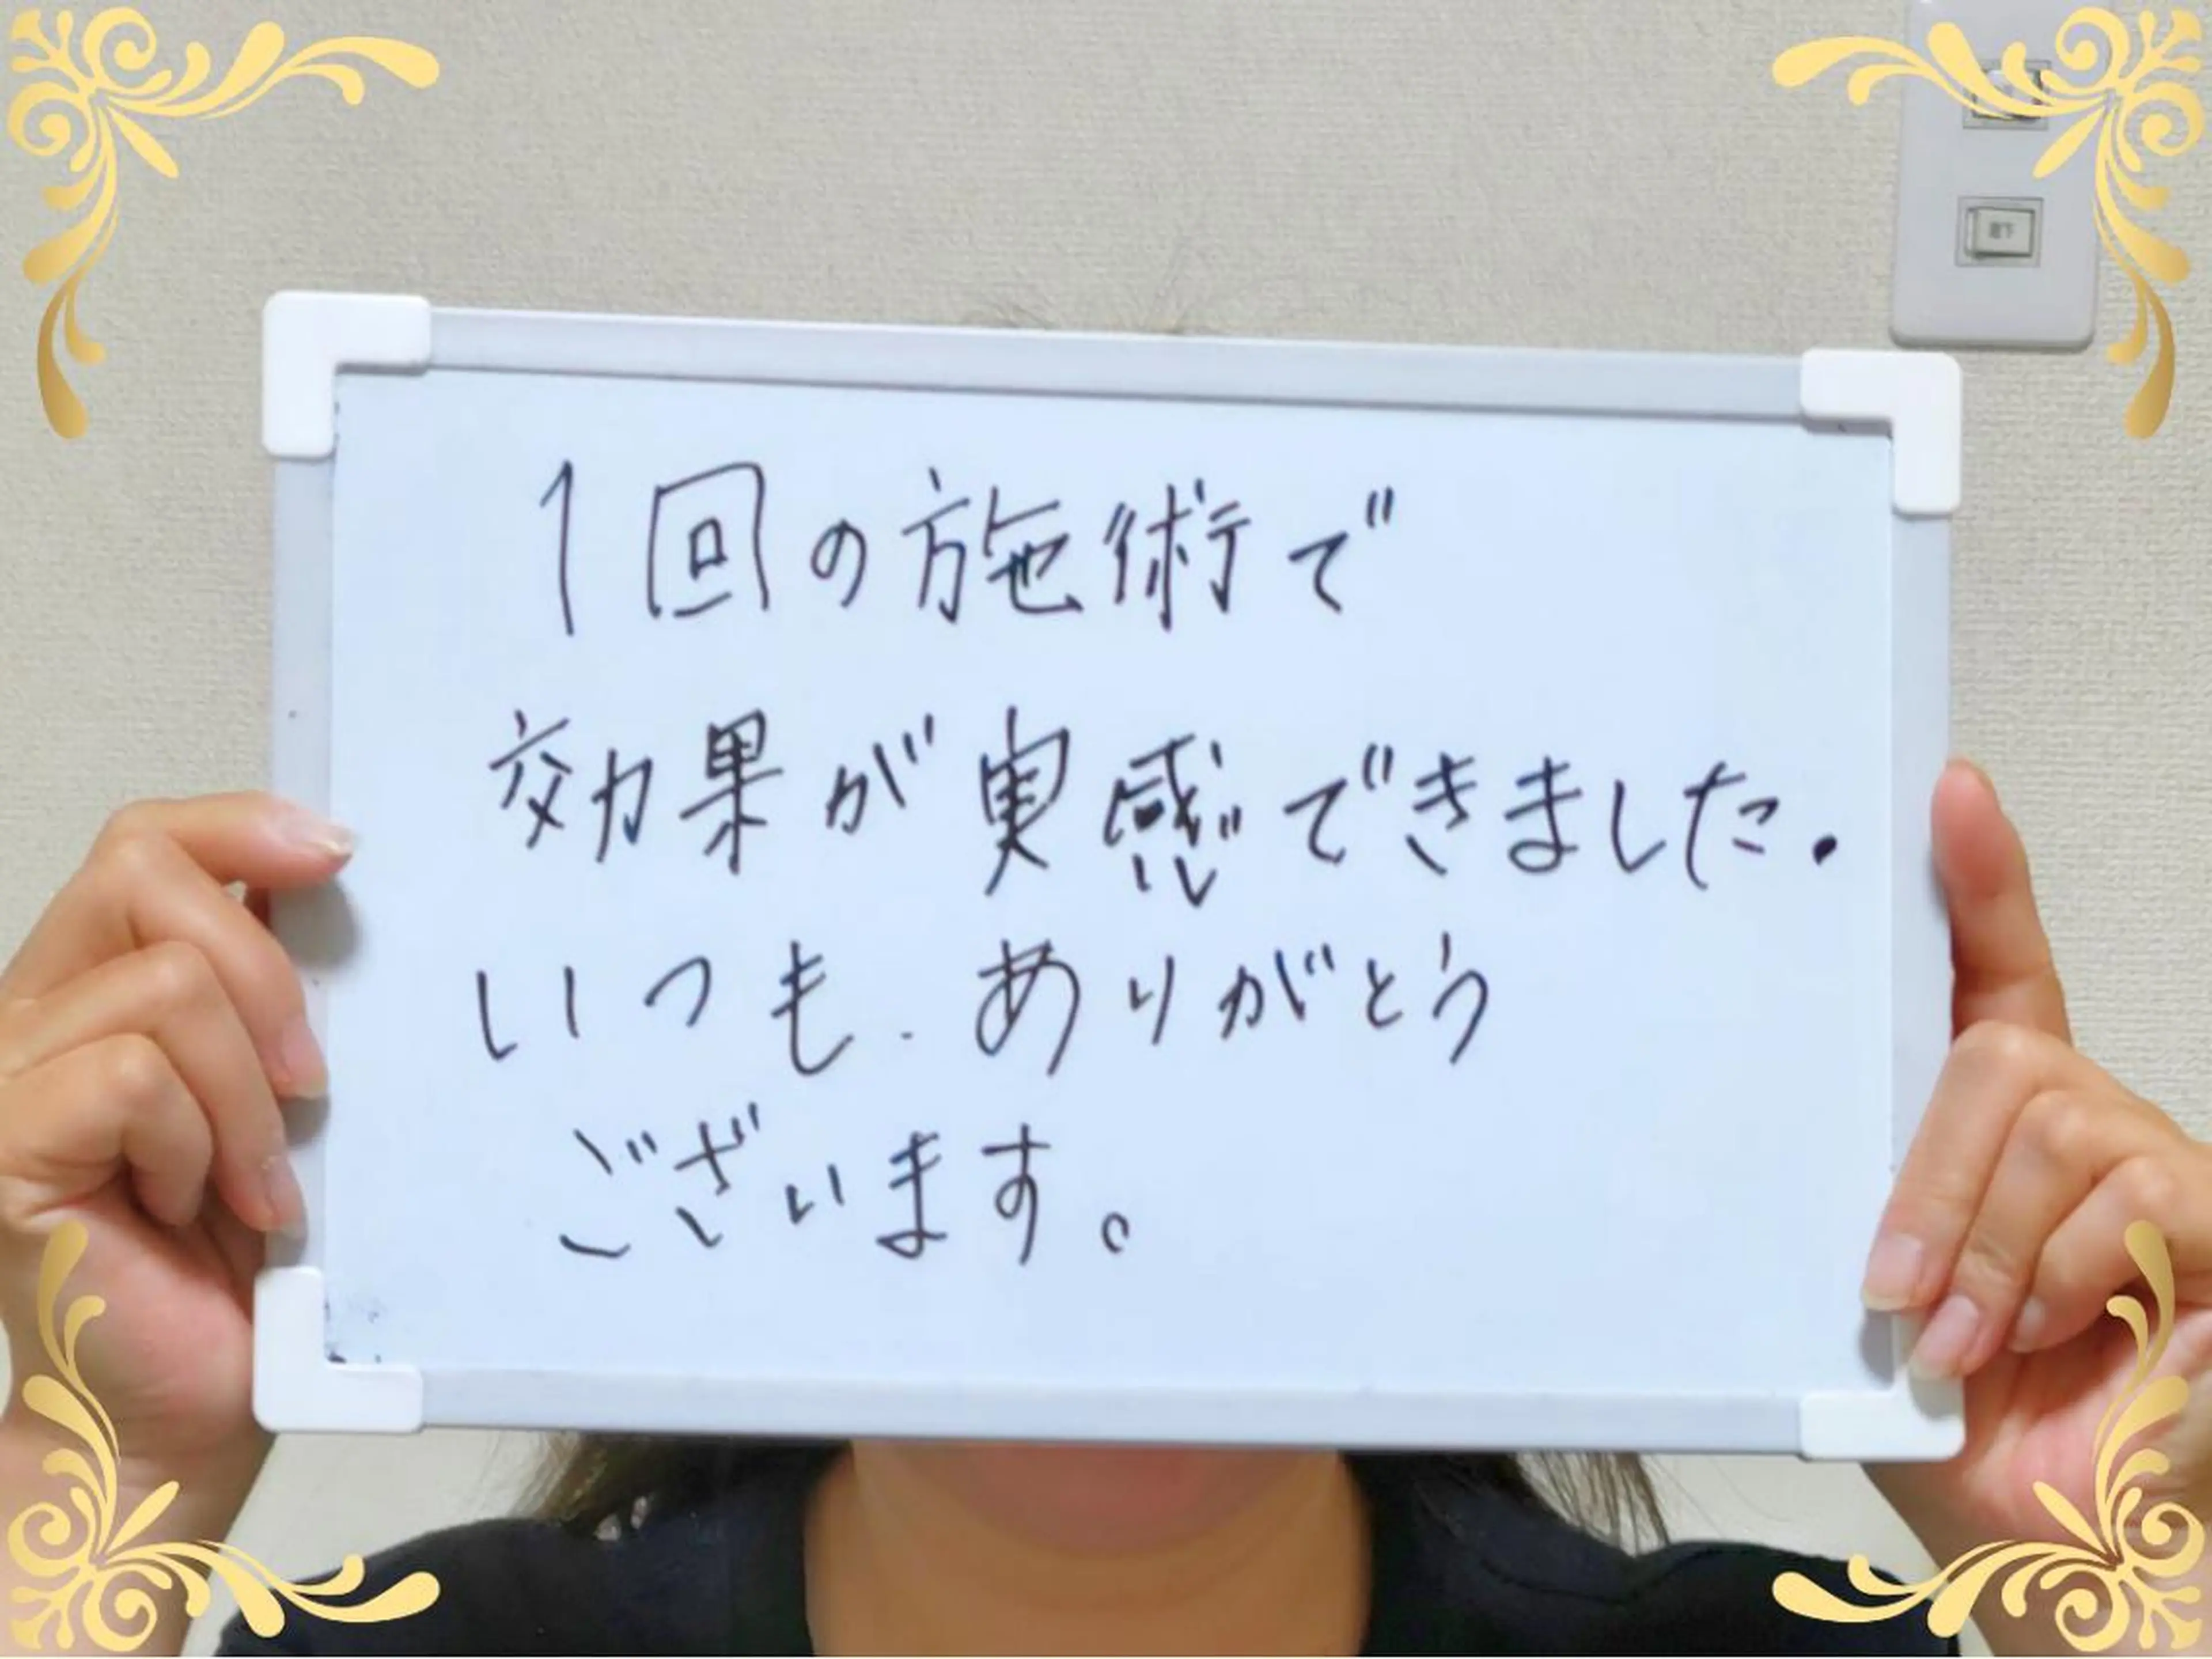 1回の施術で
効果が実感できました.
いつも.ありがとう
ございます。